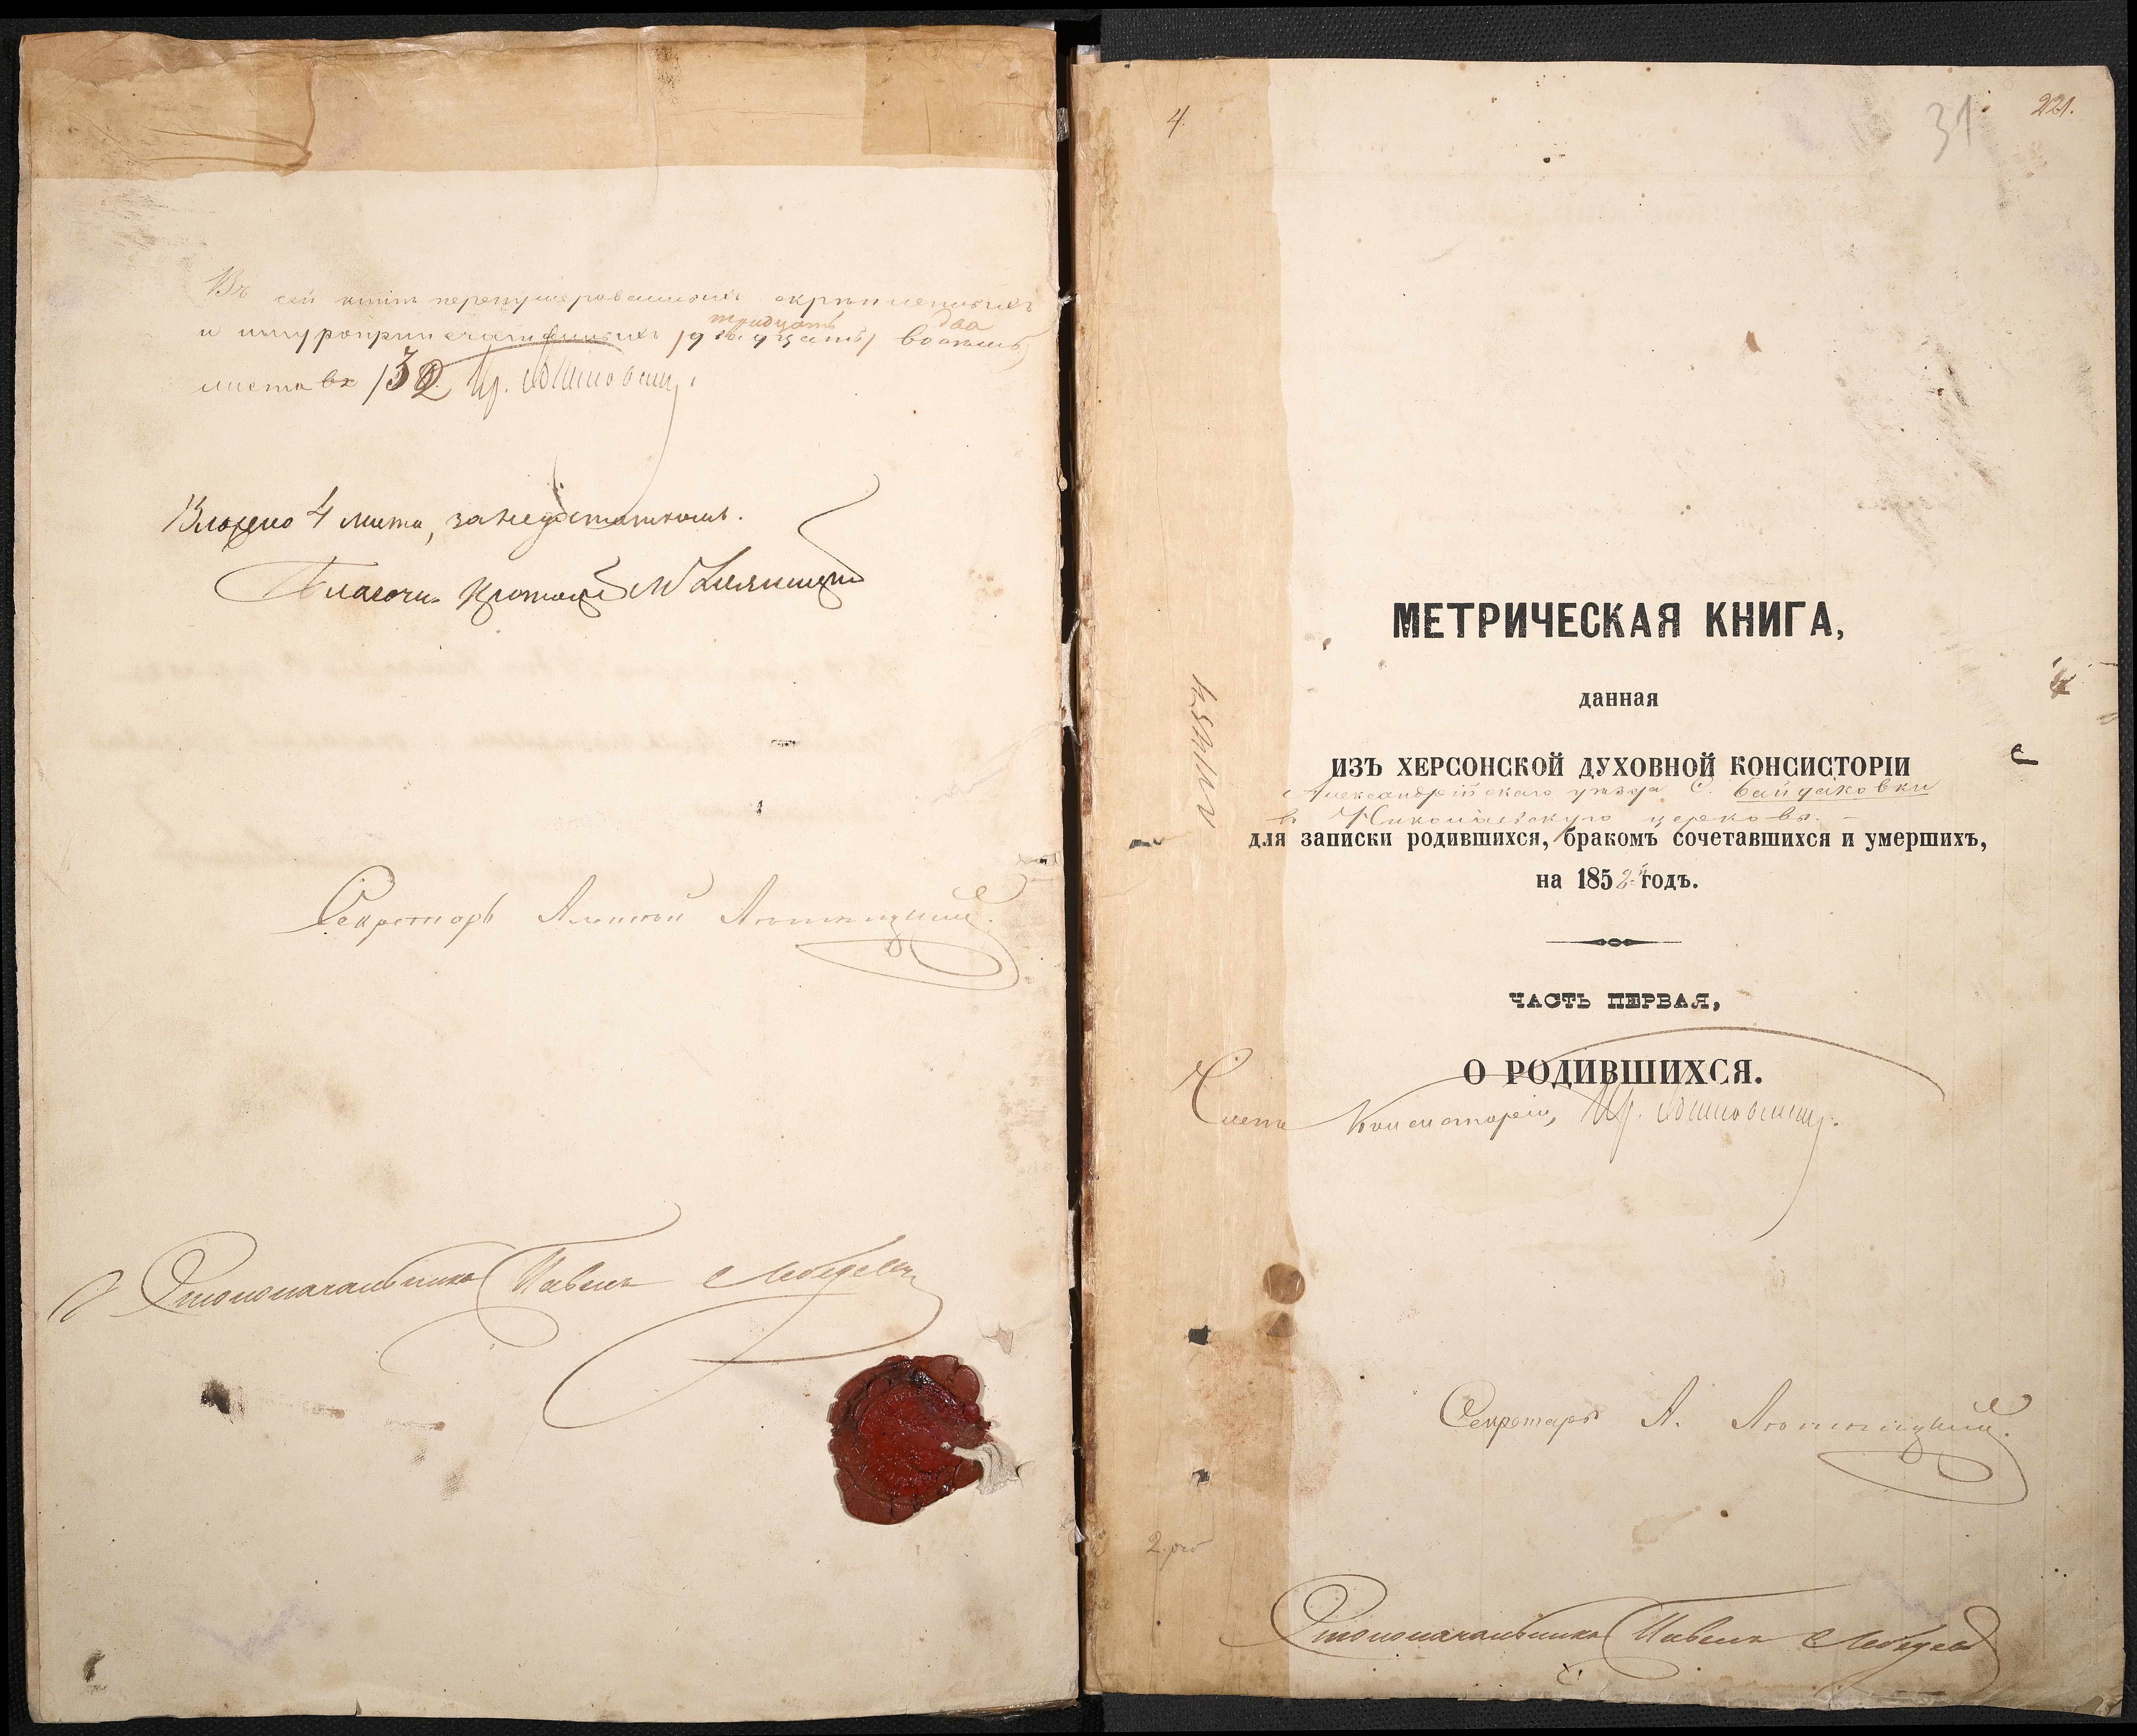 Въ сей книгѣ перенумерованныхъ скрѣпленныхъ
тридцать два
и шнуроприпечатанныхъ /двадцать/ восемь
листовъ /32 Пр.
Вложено 4 листа, за недостаткомъ.
Благочи. Протоіерей
Секретарь Алексій
Столоначальникъ Павелъ Лебедевъ
4.
31
221.
МЕТРИЧЕСКАЯ КНИГА,
данная
ИЗЪ ХЕРСОНСКОЙ ДУХОВНОЙ КОНСИСТОРІИ
Александрійскаго уѣзда С. Байдаковки
въ Николаевскую церковь. –
для записки родившихся, бракомъ сочетавшихся и умершихъ,
на 1852й годъ.
ЧАСТЬ ПЕРВАЯ,
О РОДИВШИХСЯ.
Членъ Консисторіи, Пр.
Секретарь А.
Столоначальникъ Павелъ Лебедевъ